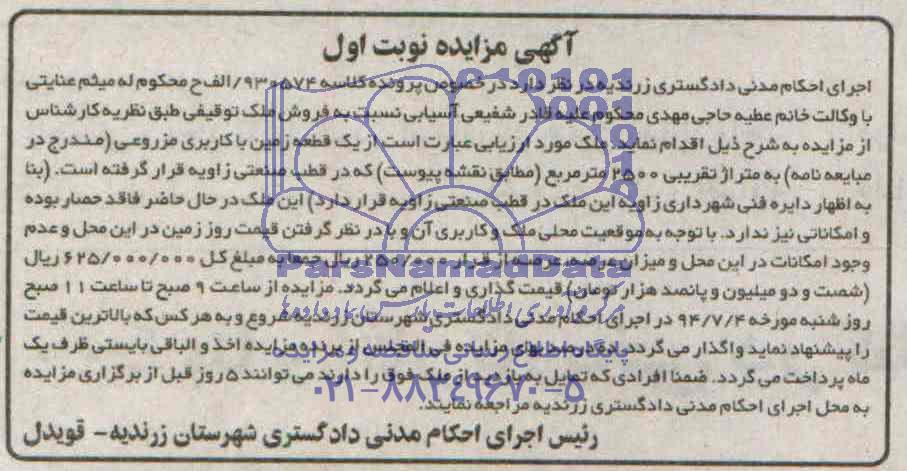 آگهی مزایده نوبت اول
اجرای احکام مدنی دادگستری زرندیه در نظر دارد در خصوص پرونده کلاسه ۹۳۰۵۷۴/الف ح محکوم له میثم عنایتی
با وکالت خانم عطیه حاجی مهدی محکوم علیه قادر شفیعی آسیابی نسبت به فروش ملک توقیفی طبق نظریه کارشناس
از مزایده به شرح ذیل اقدام نماید. ملک مورد ارزیابی عبارت است از یک قطعه زمین با کاربری مزروعی (مندرج در
مبایعه نامه) به متراژ تقریبی ۲۵۰۰ مترمربع (مطابق نقشه پیوست) که در قطب صنعتی زاویه قرار گرفته است. (بنا
به اظهار دایره فنی شهرداری زاویه این ملک در قطب صنعتی زاویه قرار دارد) این ملک در حال حاضر فاقد حصار بوده
و امکاناتی نیز ندارد. با توجه به موقعیت محلی ملک و کاربری آن و با در نظر گرفتن قیمت روز زمین در این محل و عدم
وجود امکانات در این محل و میزان عرصه، عرصه از قرار ۲۵۰/۰۰۰ ریال جمعا به مبلغ کل ۶۲۵/۰۰۰/۰۰۰ ریال
(شصت و دو میلیون و پانصد هزار تومان) قیمت گذاری و اعلام می گردد. مزایده از ساعت ۹ صبح تا ساعت ۱۱ صبح
روز شنبه مورخه ۹۴/۷/۴ در اجرای احکام مدنی دادگستری شهرستان زرندیه شروع و به هر کس که بالاترین قیمت
را پیشنهاد نماید واگذار می گردد. ده درصد بهای مزایده فی المجلس از برنده مزایده اخذ و الباقی بایستی ظرف یک
ماه پرداخت می گردد. ضمنا افرادی که تمایل به بازدید از ملک فوق را دارند می توانند ۵ روز قبل از برگزاری مزایده
به محل اجرای احکام مدنی دادگستری زرندیه مراجعه نمایند.
رئیس اجرای احکام مدنی دادگستری شهرستان زرندیه- قویدل
ParsNamadData
پایگاه اطلاع رسانی مناقصه و مزایده
۰۲۱-۸۸۳۴۹۶۷۰-۵